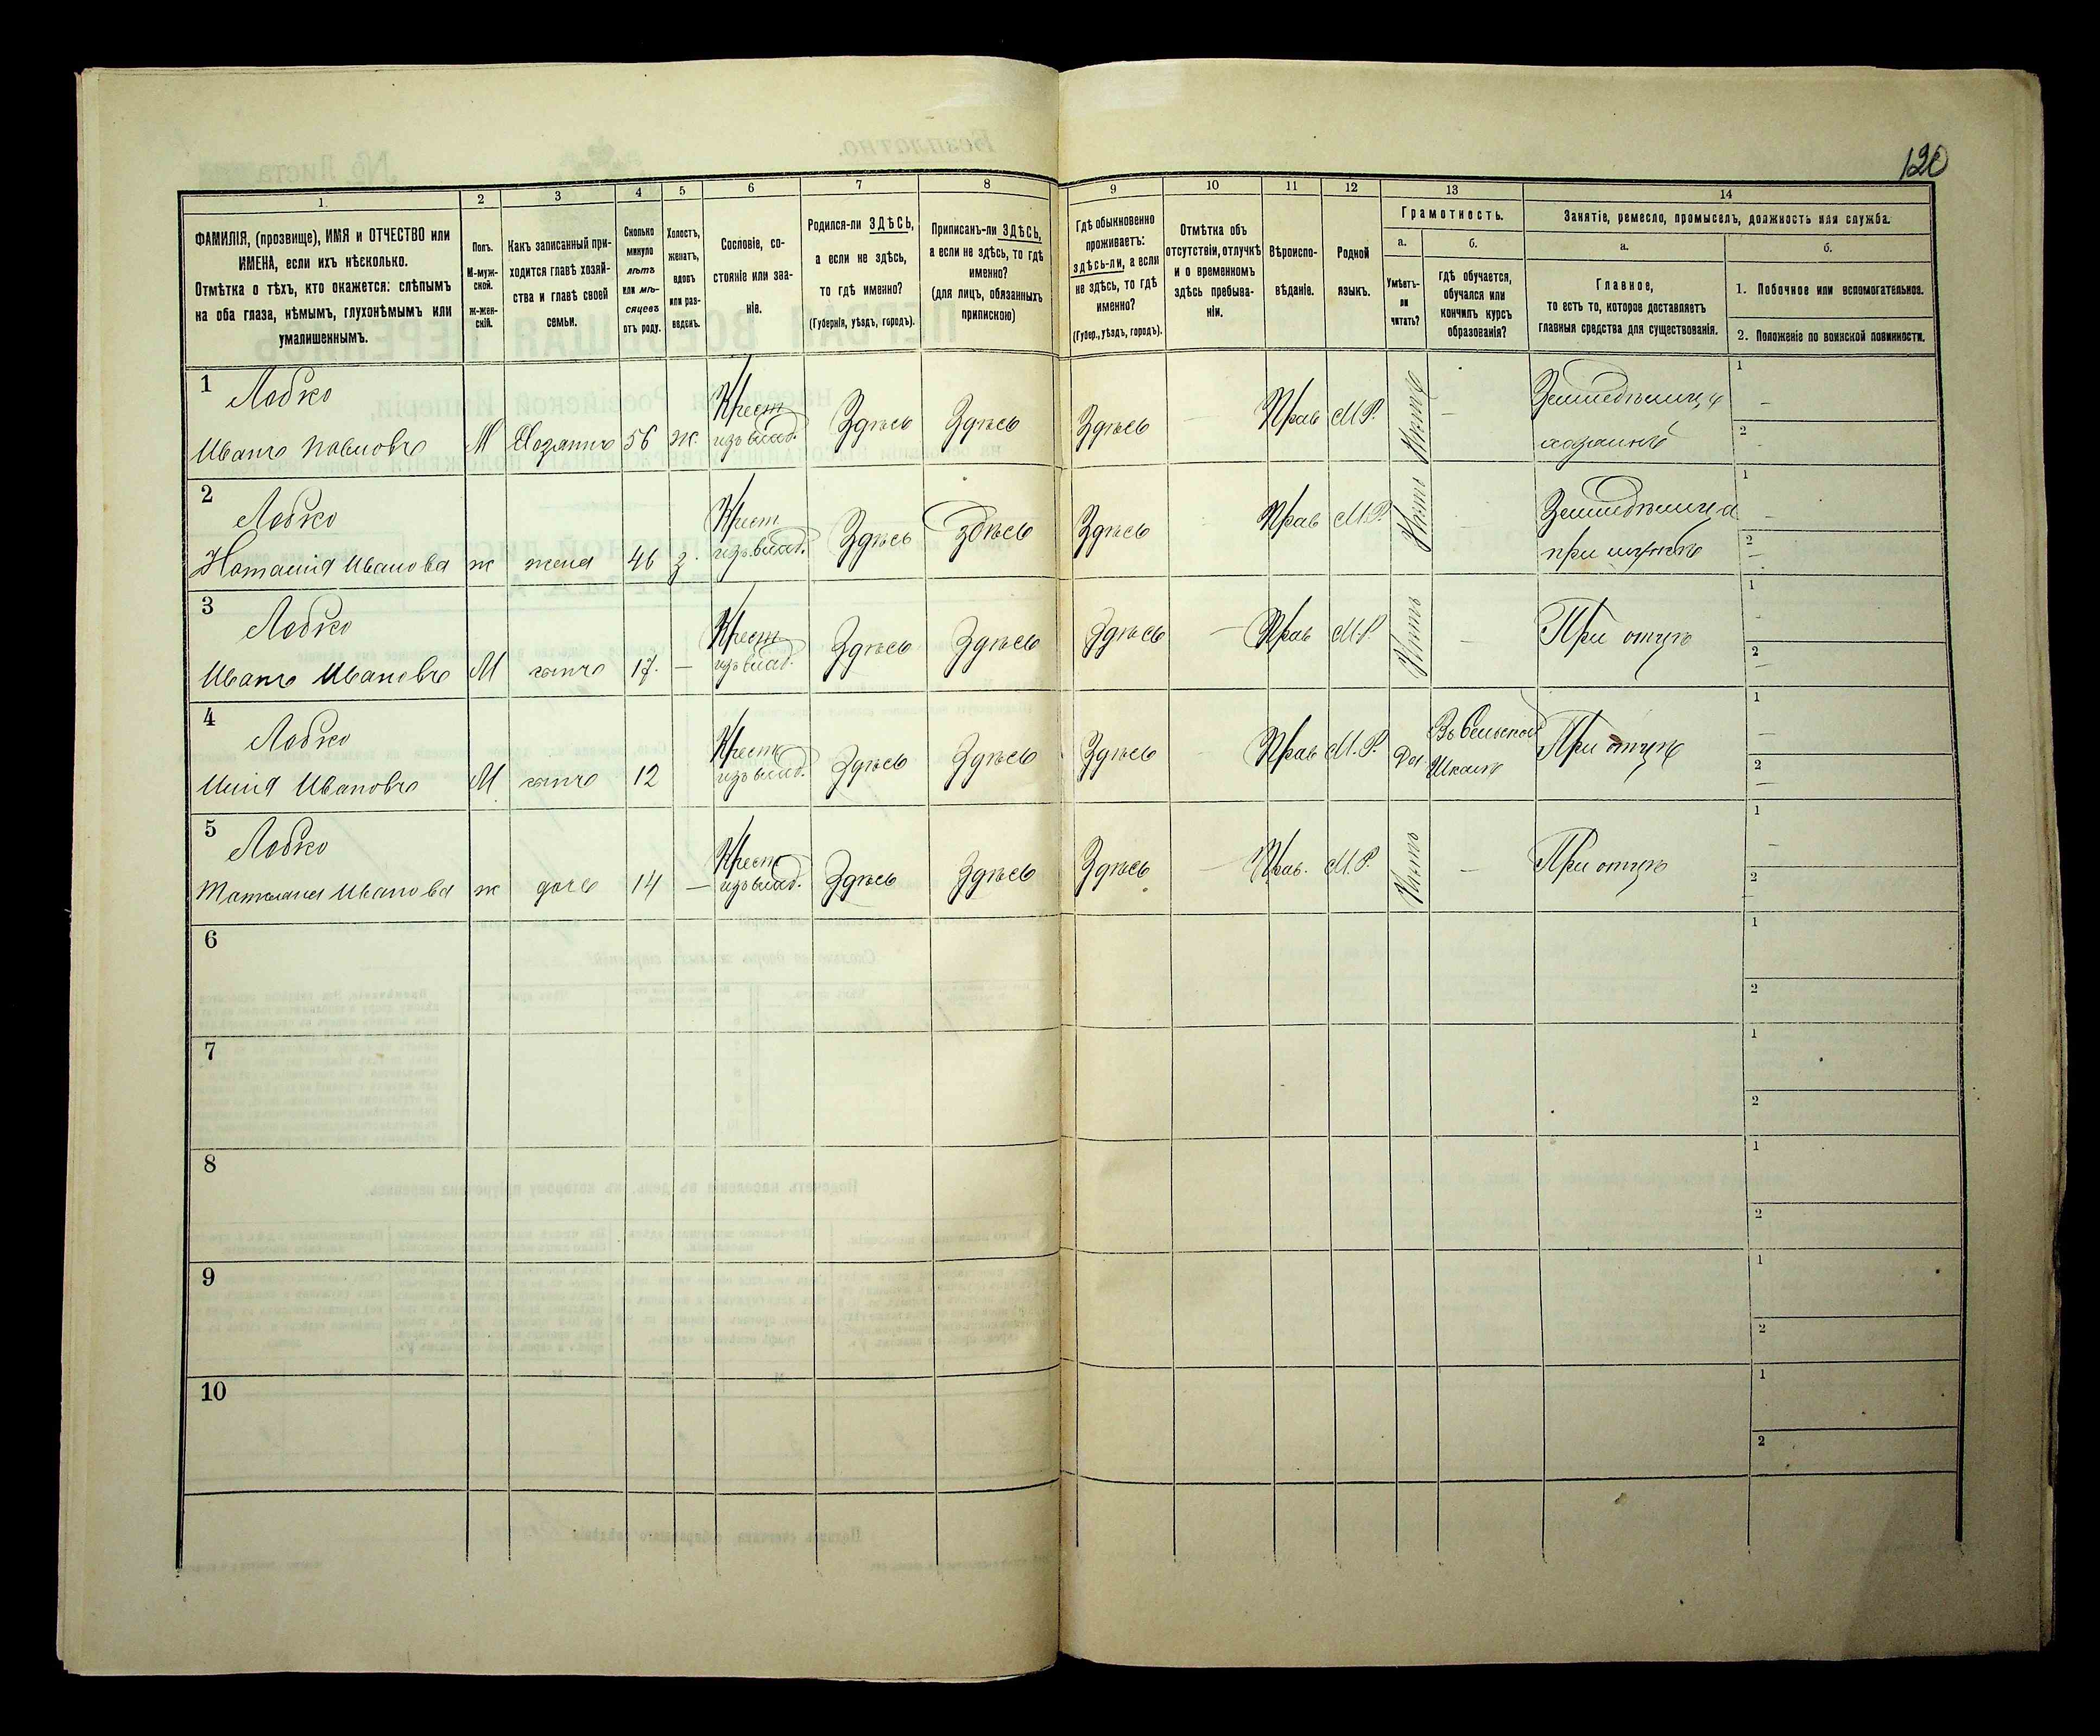 120
1 2 3 4 5 6 7 8 9 10 11 12 13 14
ФАМИЛІЯ, (прозвище), ИМЯ и ОТЧЕСТВО или
ИМЕНА, если ихъ нѣсколько.
Отмѣтка о тѣхъ, кто окажется: слѣпымъ
на оба глаза, нѣмымъ, глухонѣмымъ или
умалишеннымъ.
Полъ.
М-муж-
ской.
Ж-жен-
скій.
Какъ записанный при-
ходится главѣ хозяй-
ства и главѣ своей
семьи.
Сколько
минуло
лѣтъ
или мѣ-
сяцевъ
отъ роду.
Холостъ,
женатъ,
вдовъ
или раз-
веденъ.
Сословіе, со-
стояніе или зва-
ніе.
Родился-ли ЗДѢСЬ,
а если не здѣсь,
то гдѣ именно?
(Губернія, уѣздъ, городъ).
Приписанъ-ли ЗДѢСЬ,
а если не здѣсь, то гдѣ
именно?
(для лицъ, обязанныхъ
припискою)
Гдѣ обыкновенно
проживаетъ:
здѣсь-ли, а если
не здѣсь, то гдѣ
именно?
(Губер., уѣздъ, городъ).
Отмѣтка объ
отсутствіи, отлучкѣ
и о временномъ
здѣсь пребыва-
ніи.
Вѣроиспо-
вѣданіе.
Родной
языкъ.
Грамотность.
а.
Умѣетъ-
ли
читать?
б.
гдѣ обучается,
обучался или
кончилъ курсъ
образованія?
Занятіе, ремесло, промыселъ, должность или служба.
а.
Главное,
то есть то, которое доставляетъ
главныя средства для существованія.
б.
1. Побочное или вспомогательное.
2. Положеніе по воинской повинности.
1 Лобко Крест 1
Иванъ Павловъ М Хозяинъ 56 ж. изъ влад. Здѣсь Здѣсь Здѣсь — Прав М.Р. Нѣтъ — хозяинъ 2
2 Лобко Крест 1
Наталія Иванова ж жена 46 з. изъ влад. Здѣсь Здѣсь Здѣсь Прав М.Р. Нѣтъ при мужѣ 2
3 Лобко Крест 1
Иванъ Ивановъ М сынъ 17. — изъ влад. Здѣсь Здѣсь Здѣсь — Прав М.Р. Нѣтъ — При отцѣ 2
4 Лобко Крест Въ Сельской 1
Илія Ивановъ М сынъ 12 изъ влад. Здѣсь Здѣсь Здѣсь Прав М.Р. Да Школѣ При отцѣ 2
5 Лобко Крест 1
Татьяна Иванова ж дочь 14 — изъ влад. Здѣсь Здѣсь Здѣсь — Прав. М.Р. Нѣтъ — При отцѣ 2
6 1
2
7 1
2
8 1
2
9 1
2
10 1
2